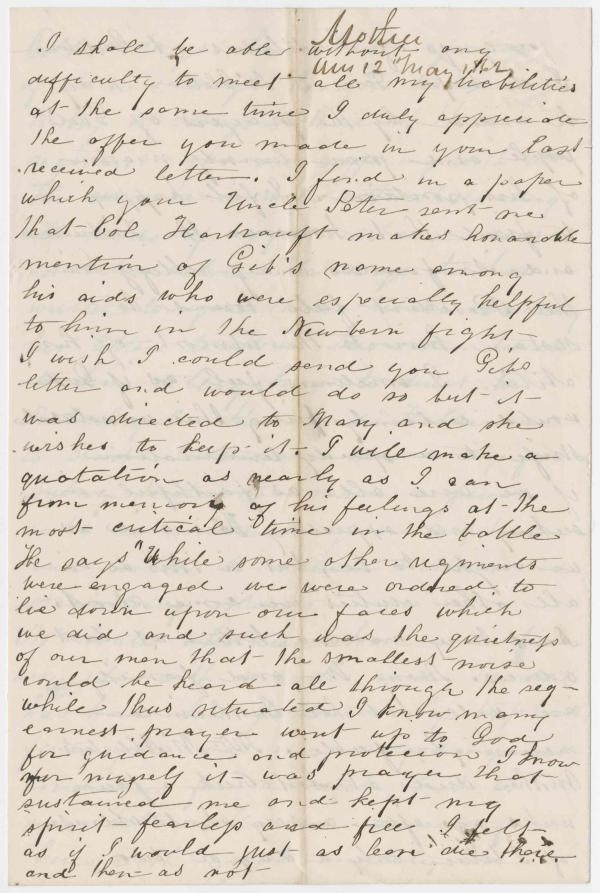 Mother
Ans 12th May 1862
I shall be able without any
difficulty to meet all my liabilities
at the same time I duly appreciate
the offer you made in your last
received letter. I find in a paper
which your Uncle Peter sent me
that Col Hartrauft makes honorable
mention of Gib's name among
his aids who were especially helpful
to him in the Newbern fight
I wish I could send you Gibs
letter and would do so but it
was directed to Mary and she
wishes to keep it. I will make a
quotation as nearly as I can
from memory of his feelings at the
most critical time in the battle
He says "While some other regiments
were engaged we were ordered to
lie down upon our faces which
we did and such was the quietness
of our men that the smallest noise
could be heard all through the reg-
while thus situated I know many
earnest prayer went up to God
for guidance and protecion I know
for myself it was prayer that
sustained me and kept my
spirit fearless and free I felt
as if I would just as leave die there
and then as not